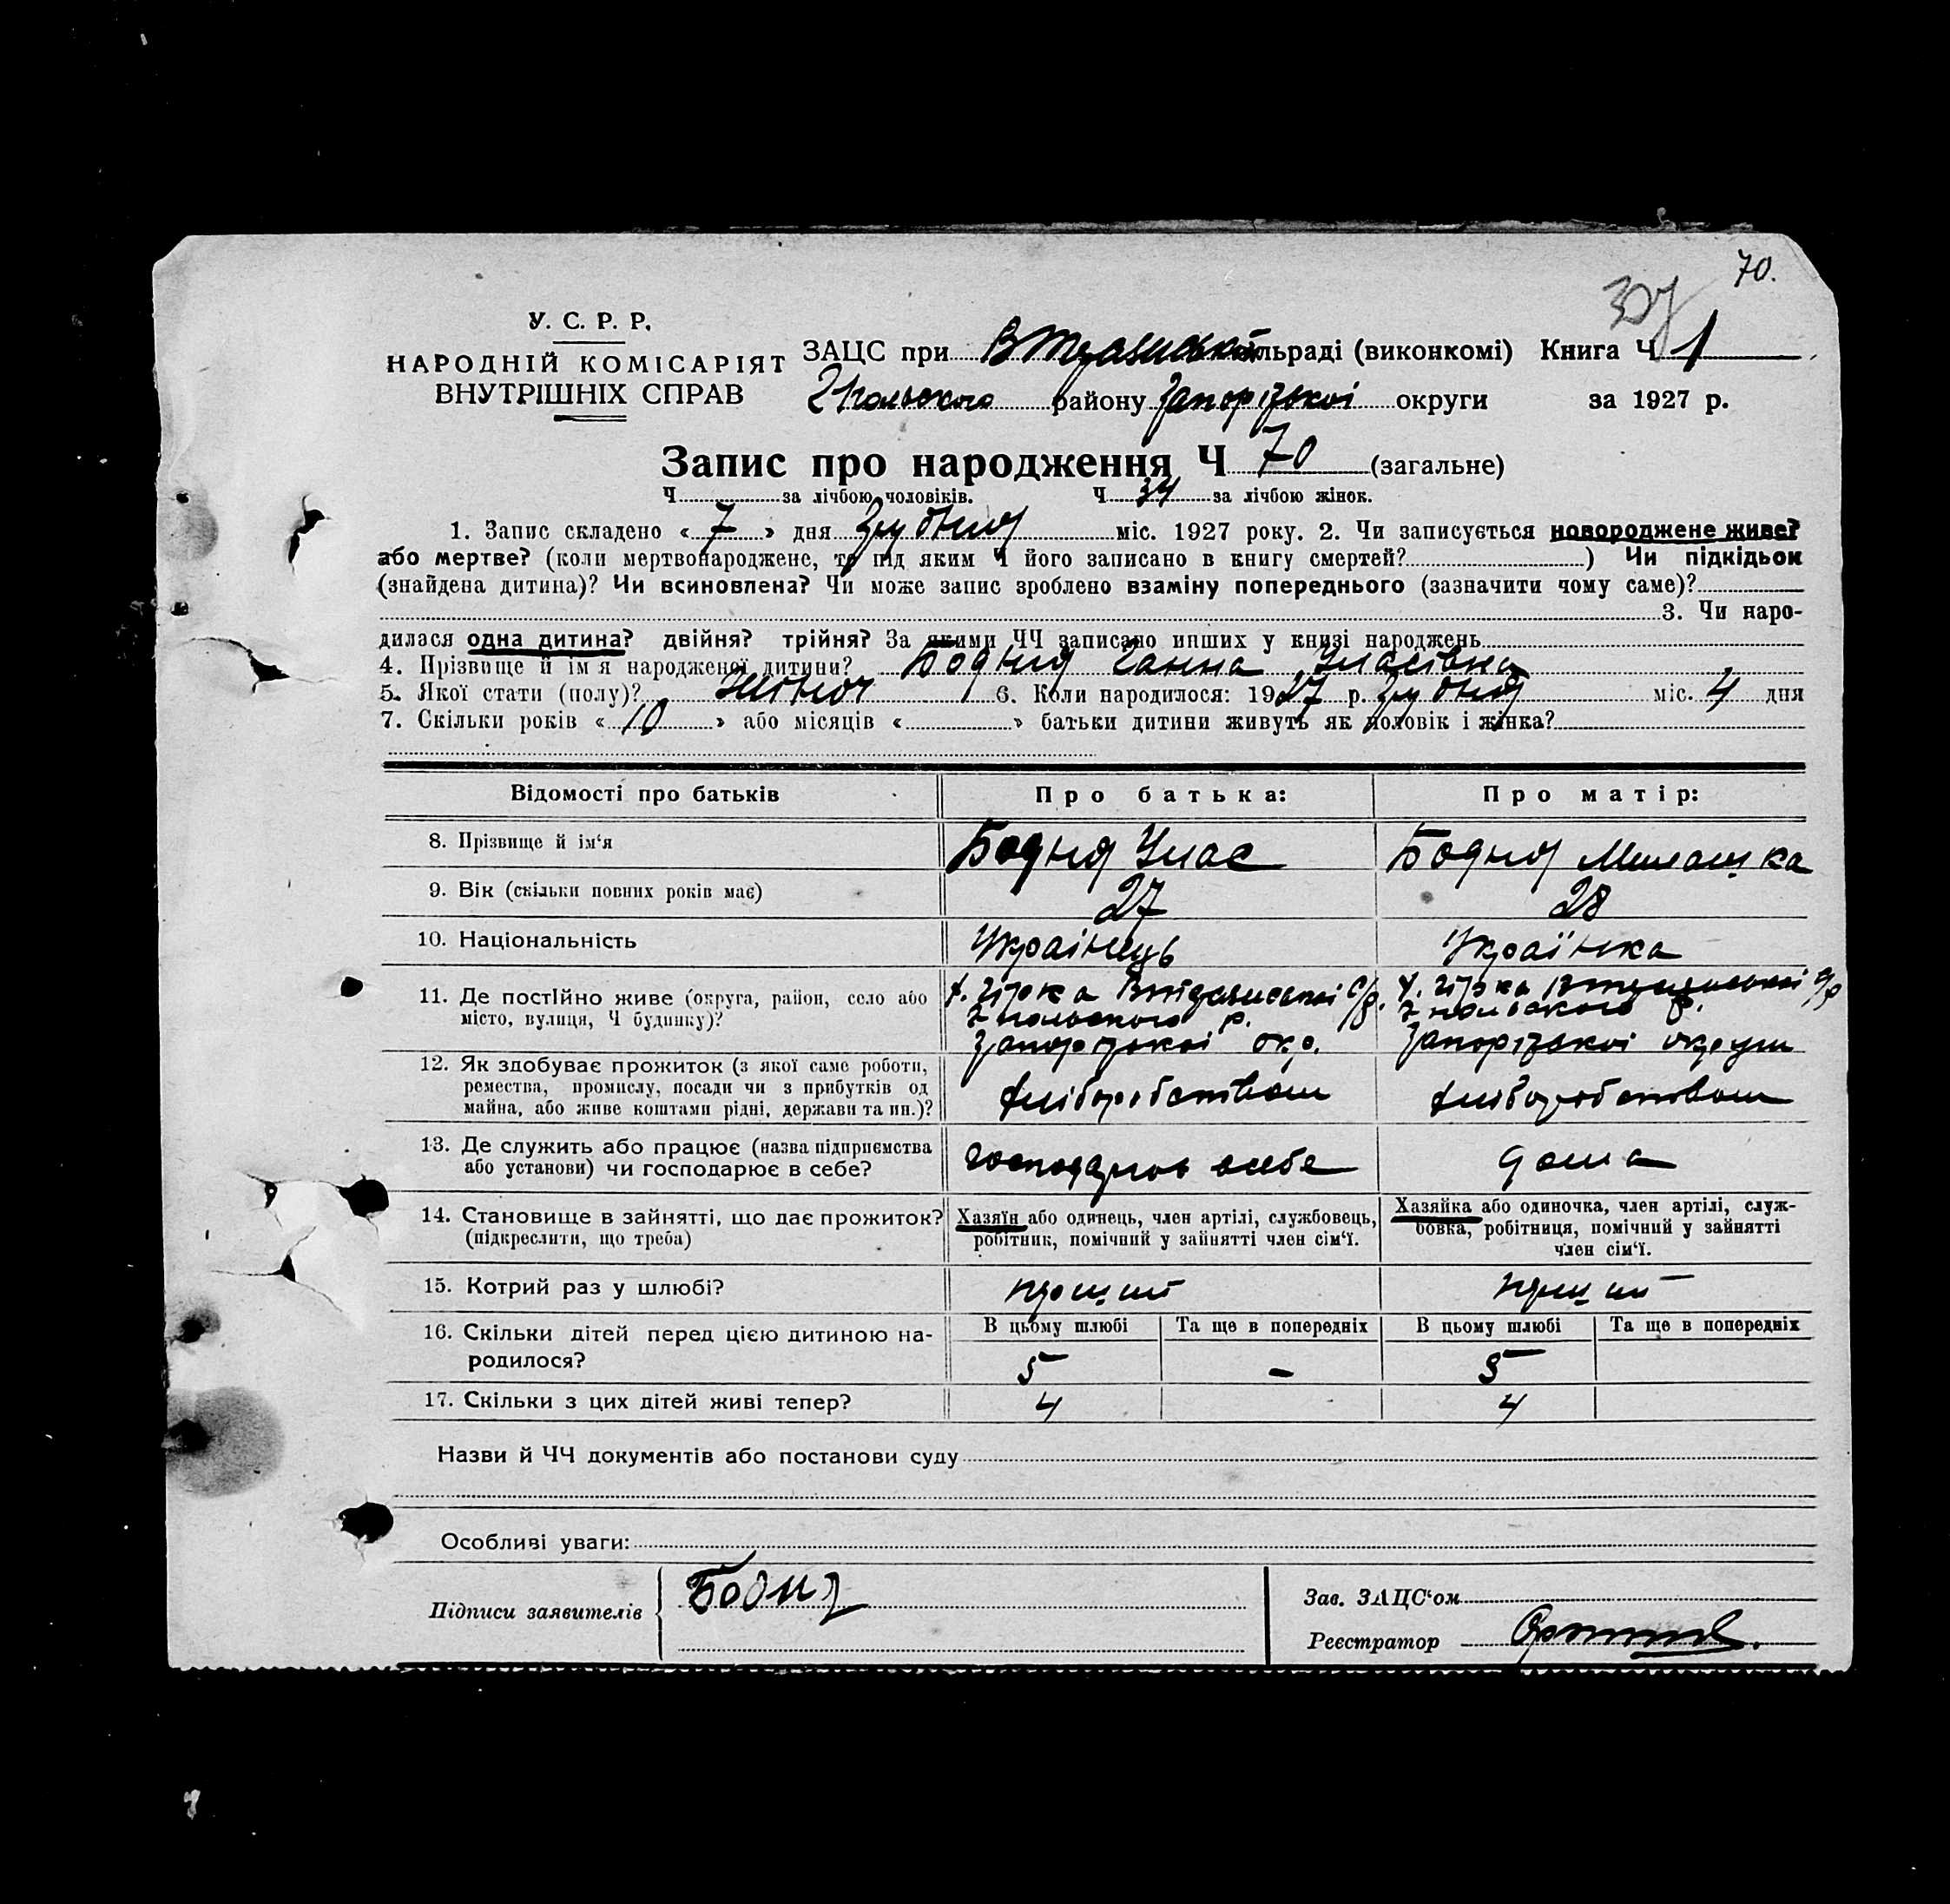 70.
307
У. С. Р. Р.
НАРОДНІЙ КОМІСАРІЯТ
ВНУТРІШНІХ СПРАВ
ЗАЦС при льраді (виконкомі) Книга Ч 1
району Запорізької округи за 1927 р.
Запис про народження Ч 70 (загальне)
Ч за лічбою чоловіків. Ч 34 за лічбою жінок.
1. Запис складено « 7 » дня Грудня міс. 1927 року. 2. Чи записується новороджене живе?
або мертве? (коли мертвонароджене, то під яким Ч його записано в книгу смертей? ) Чи підкідьок
(знайдена дитина)? Чи всиновлена? Чи може запис зроблено взаміну попереднього (зазначити чому саме)?
3. Чи наро-
дилася одна дитина? двійня? трійня? За якими ЧЧ записано инших у книзі народжень
4. Прізвище й ім'я народженої дитини? Бодня Ганна Уласівна
5. Якої стати (полу)? Жіноч 6. Коли народилося: 1927 р. Грудня міс. 4 дня
7. Скільки років « 10 » або місяців « » батьки дитини живуть як чоловік і жінка?
Відомості про батьків Про батька: Про матір:
8. Прізвище й ім'я Бодня Улас Бодня Милашка
9. Вік (скільки повних років має) 27 28
10. Національність Українець Українка
11. Де постійно живе (округа, район, село або
місто, вулиця, Ч будинку)?
х. Зірка с/р. х. Зірка с/р
р. р.
Запорізької окр. Запорізької округи
12. Як здобуває прожиток (з якої саме роботи,
ремества, промислу, посади чи з прибутків од
майна, або живе коштами рідні, держави та ин.)?
хліборобством хліборобством
13. Де служить або працює (назва підприємства
або установи) чи господарює в себе?
господарює в себе дома
14. Становище в зайнятті, що дає прожиток?
(підкреслити, що треба)
Хазяїн або одинець, член артілі, службовець,
робітник, помічний у зайнятті член сім'ї.
Хазяйка або одиночка, член артілі, служ-
бовка, робітниця, помічний у зайнятті
член сім'ї.
15. Котрий раз у шлюбі?
16. Скільки дітей перед цією дитиною на-
родилося?
В цьому шлюбі Та ще в попередніх В цьому шлюбі Та ще в попередніх
5 - 5
17. Скільки з цих дітей живі тепер? 4 4
Назви й ЧЧ документів або постанови суду
Особливі уваги:
Підписи заявителів Бодня
Зав. ЗАЦС'ом
Реєстратор